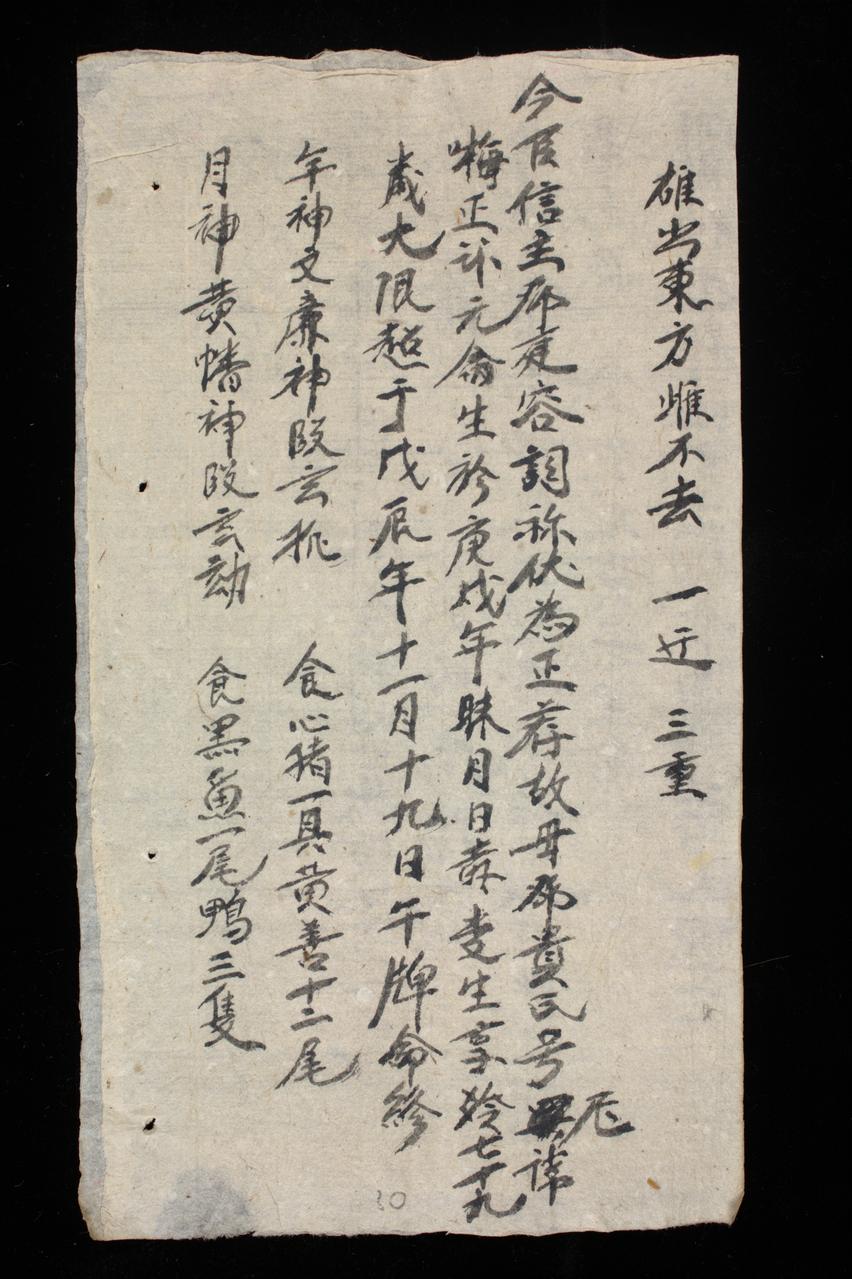 雄出東方雌不去 一近 三重
今臣信主 容詞称伏為正荐故母 黄氏号 諱
梅正 元 生於庚戌年昧月日 受生享 七十九
歲大限超于戊辰年十一月十九日午牌命終
年神文廉神段玄 食心猪一具黄善十二尾
月神黄幡神段玄 食黑魚一尾鴨三隻
30